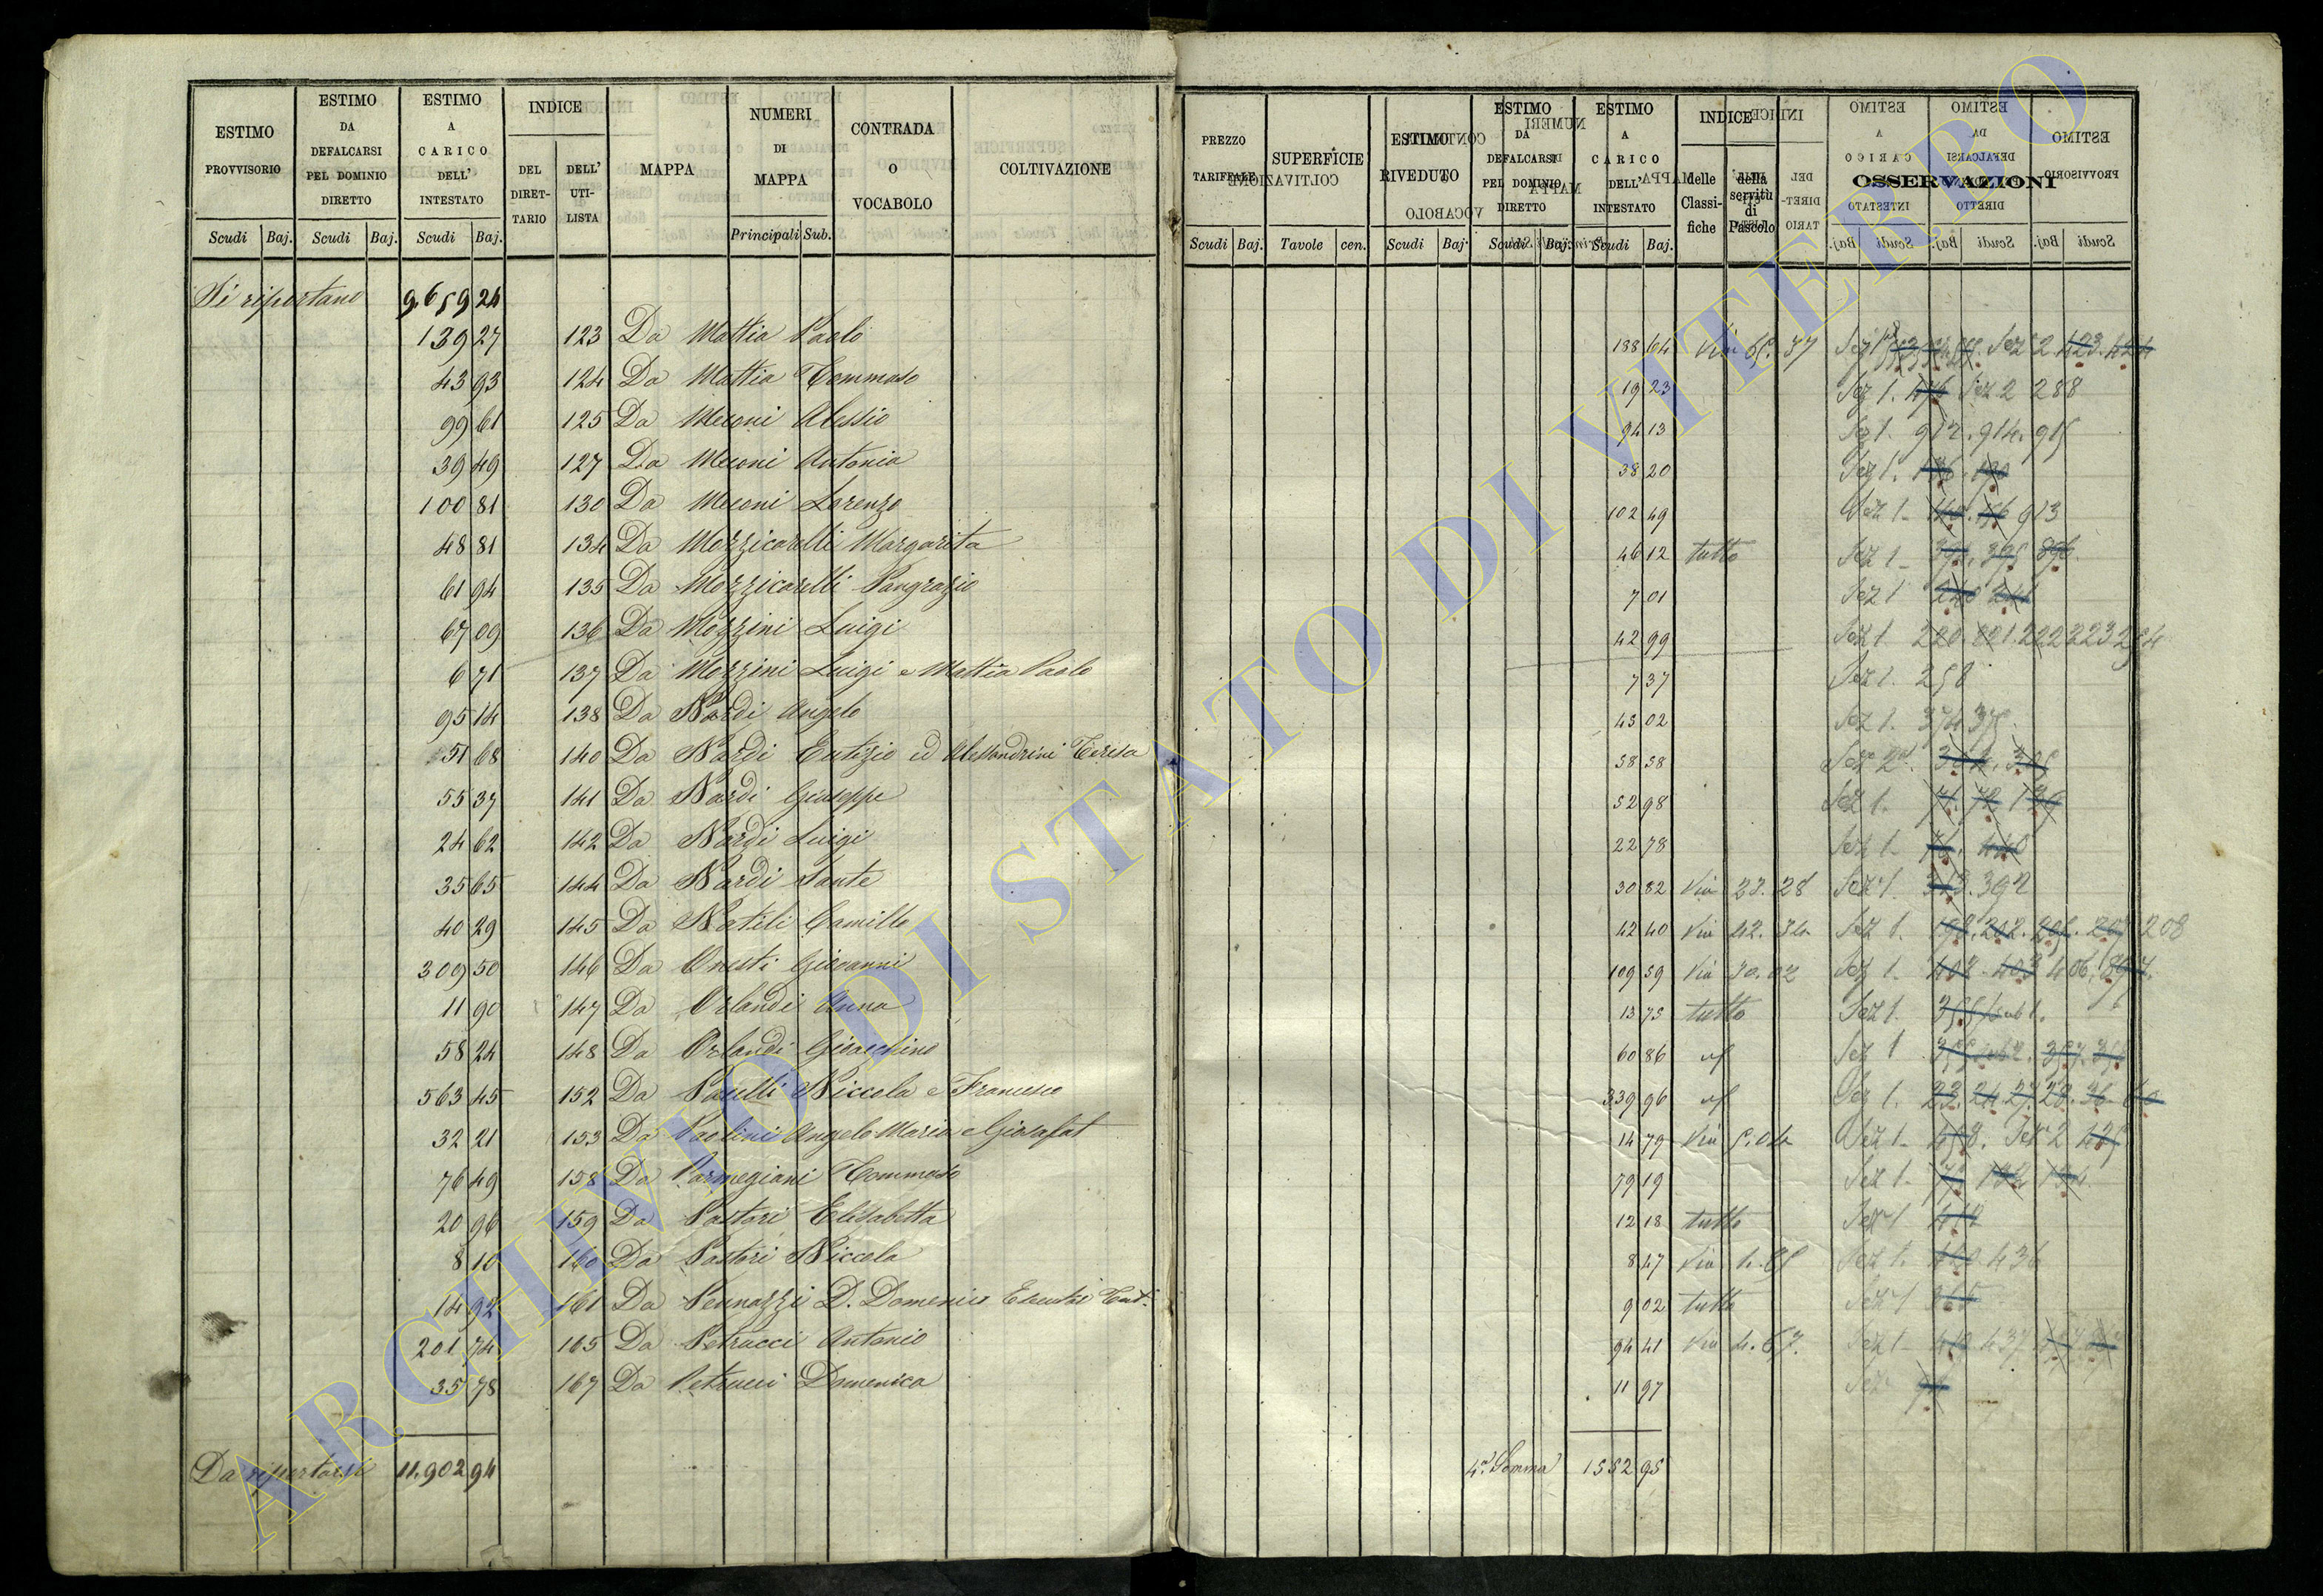 ESTIMO PROVVISORIO
ESTIMO DA DEFALCARSI PEL DOMINIO DIRETTO
ESTIMO A CARICO DELL' INTESTATO
INDICE
DEL DIRET-TARIO
DELL' UTI-LISTA
MAPPA
NUMERI DI MAPPA
CONTRADA O VOCABOLO
COLTIVAZIONE
Scudi Baj. Scudi Baj. Scudi Baj. Principali Sub.
Si riportano 9.659 24
139 27 123 Da Mattia Paolo
43 93 124 Da Mattia Tommaso
99 61 125 Da Meconi Alessio
39 49 127 Da Meconi Antonia
100 81 130 Da Meconi Lorenzo
48 81 134 Da Mozzicarelli Margarita
61 94 135 Da Mozzicarelli Pangrazio
67 09 136 Da Mozzini Luigi
6 71 137 Da Mozzini Luigi e Mattia Paolo
95 14 138 Da Nardi Angelo
51 68 140 Da Nardi Eutizio ed Alessandrini Teresa
55 37 141 Da Nardi Giuseppe
24 62 142 Da Nardi Luigi
35 65 144 Da Nardi Sante
40 29 145 Da Natili Camillo
309 50 146 Da Onesti Giovanni
11 90 147 Da Orlandi Anna
58 24 148 Da Orlandi Gioacchino
563 45 152 Da Paielli Niccola e Francesco
32 21 153 Da Paolini Angelo Maria e Giosafat
76 49 158 Da Parmegiani Tommaso
20 96 159 Da Pastori Elisabetta
8 10 160 Da Pastori Niccola
14 92 161 Da Pennazzi D. Domenico
201 74 165 Da Petrucci Antonio
35 78 167 Da Petrucci Domenica
Da riportarsi 11.902 94
PREZZO TARIFFALE
SUPERFICIE
ESTIMO RIVEDUTO
ESTIMO DA DEFALCARSI PEL DOMINIO DIRETTO
ESTIMO A CARICO DELL' INTESTATO
INDICE
delle Classi-fiche
della servitù di Pascolo
OSSERVAZIONI
Scudi Baj. Tavole cen. Scudi Baj. Scudi Baj. Scudi Baj.
188 64 Via 65. 37 Sez 1 Sez 2 423. 424
19 23 Sez 1. 476 Sez 2 288
94 13 Sez 1. 912. 914. 915
38 20 Sez 1.
102 49 Sez 1 - 913
46 12 tutto Sez 1 - 394. 395 896.
7 01 Sez 1 240 241
42 99 Sez 1. 220. 221. 222 223 224
7 37 Sez 1. 258
43 02 Sez 1. 374 375
38 58 Sez 2ª. 304. 305
52 98 Sez 1. 71. 72 136
22 78 Sez 1 - 440
30 82 Via 23. 28 Sez 1. 313. 392
42 40 Via 42. 34 Sez 1. 198. 202. 205. 207 208
109 59 Via 30. 02 Sez 1. 402. 403 406. 897.
13 75 tutto Sez 1. 355 sub 1.
60 86 id Sez 1 355 sub 2. 357. 358
339 96 id Sez 1. 23. 24. 27. 28. 36. 60
14 79 Via 5. 04 Sez 1 - 458. Sez 2 425
79 19 Sez 1 -
12 18 tutto Sez 1 414
8 47 Via 4. 85 Sez 1. 420. 436
9 02 tutto Sez 1 365
94 41 Via 4. 67. Sez 1 - 437
11 97 Sez
4ª Somma 1552 95
ARCHIVIO DI STATO DI VITERBO